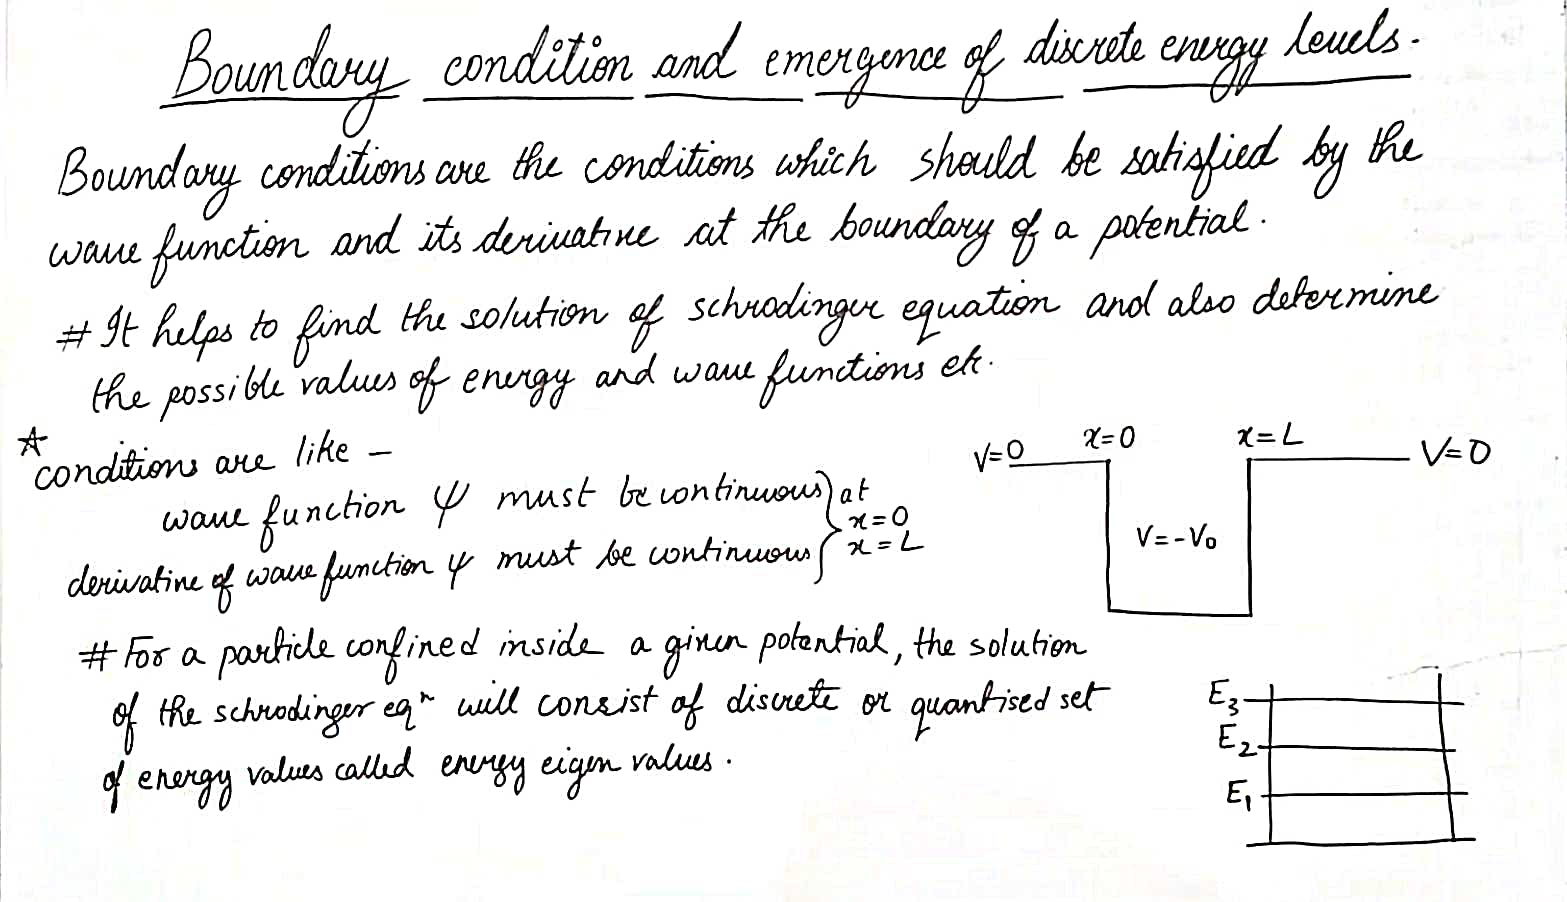 Boundary condition and emergence of discrete energy levels.
Boundary conditions are the conditions which should be satisfied by the
wave function and its derivative at the boundary of a potential.
# It helps to find the solution of schrodinger equation and also determine
the possible values of energy and wave functions etc.
☆ conditions are like –
wave function ψ must be continuous } at
x=0
derivative of wave function ψ must be continuous x=L
V=0 x=0 x=L V=0
V=-V₀
# For a particle confined inside a given potential, the solution
of the schrodinger eqⁿ will consist of discrete or quantised set
of energy values called energy eigen values.
E₃
E₂
E₁